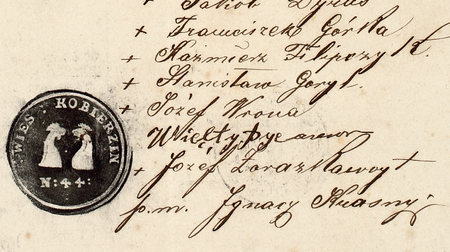 + Jakób Dyrus
+ Franciszek Górka
+ Kazimierz Filipczyk.
+ Stanisław Goryl.
+ Józef Wrona
+ Józef
p.m. Ignacy Krasny
WIES KOBIERZIN
N:44: